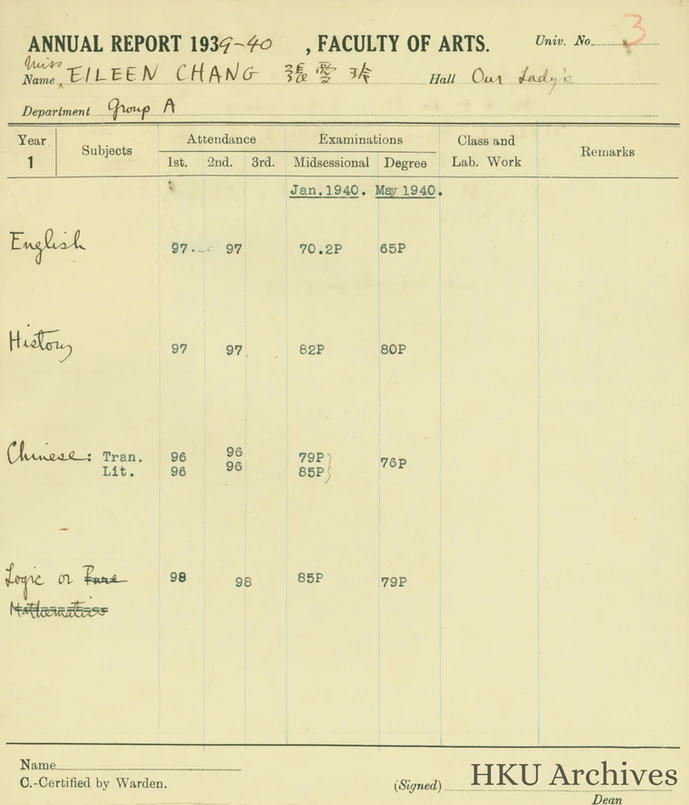 3
ANNUAL REPORT 1939-40, FACULTY OF ARTS. Univ. No.
Miss
Name EILEEN CHANG 張愛玲 Hall Our Lady's
Department Group A
Year 1 Subjects Attendance Examinations Class and Lab. Work Remarks
1st. 2nd. 3rd. Midsessional Degree
Jan.1940. May 1940.
English 97 97 70.2P 65P
History 97 97 82P 80P
Chinese: Tran. 96 96 79P 76P
Lit. 96 96 85P
Logic or Pure 98 98 85P 79P
Mathematics
Name
C.-Certified by Warden.
(Signed) HKU Archives
Dean